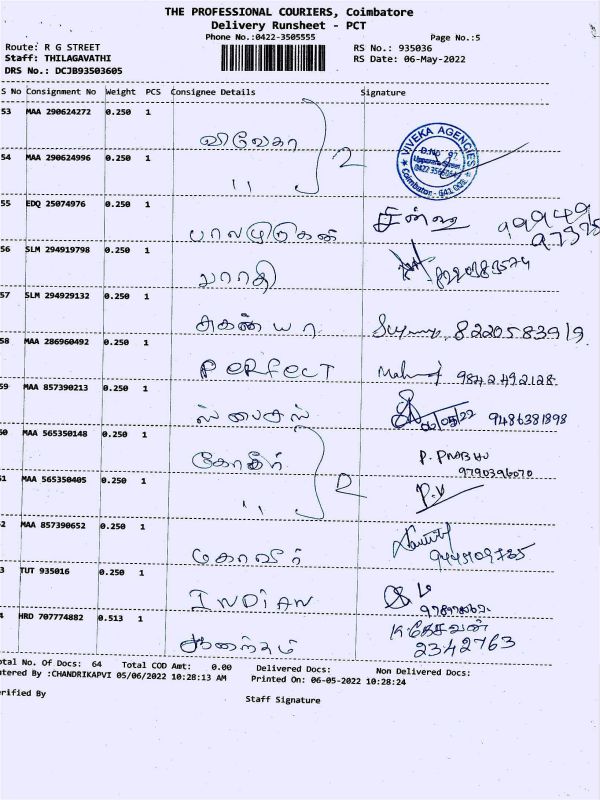 THE PROFESSIONAL COURIERS, Coimbatore
Delivery Runsheet - PCT
Phone No.:0422-3505555 Page No.:5
Route: R G STREET RS No.: 935036
Staff: THILAGAVATHI RS Date: 06-May-2022
DRS No.: DCJB93503605
S No Consignment No Weight PCS Consignee Details Signature
53 MAA 290624272 0.250 1
விவேகா 2 VIVEKA AGENCIES
54 MAA 290624996 0.250 1 Coimbatore - 641 001
"
55 EDQ 25074976 0.250 1
பாலமுருகன்
56 SLM 294919798 0.250 1
பாரதி
57 SLM 294929132 0.250 1
சுகன்யா 8220583919
58 MAA 286960492 0.250 1
PERFECT 9842492128
59 MAA 857390213 0.250 1
ஸ்பைசஸ் 06/05/22 9486381898
60 MAA 565350148 0.250 1
2 P. PRABHU
9790396070
61 MAA 565350405 0.250 1
" P.V
2 MAA 857390652 0.250 1
3 TUT 935016 0.250 1
INDIAN
4 HRD 707774882 0.513 1 K. கேசவன்
ஆனந்தம் 2342763
otal No. Of Docs: 64 Total COD Amt: 0.00 Delivered Docs: Non Delivered Docs:
ntered By :CHANDRIKAPVI 05/06/2022 10:28:13 AM Printed On: 06-05-2022 10:28:24
erified By Staff Signature